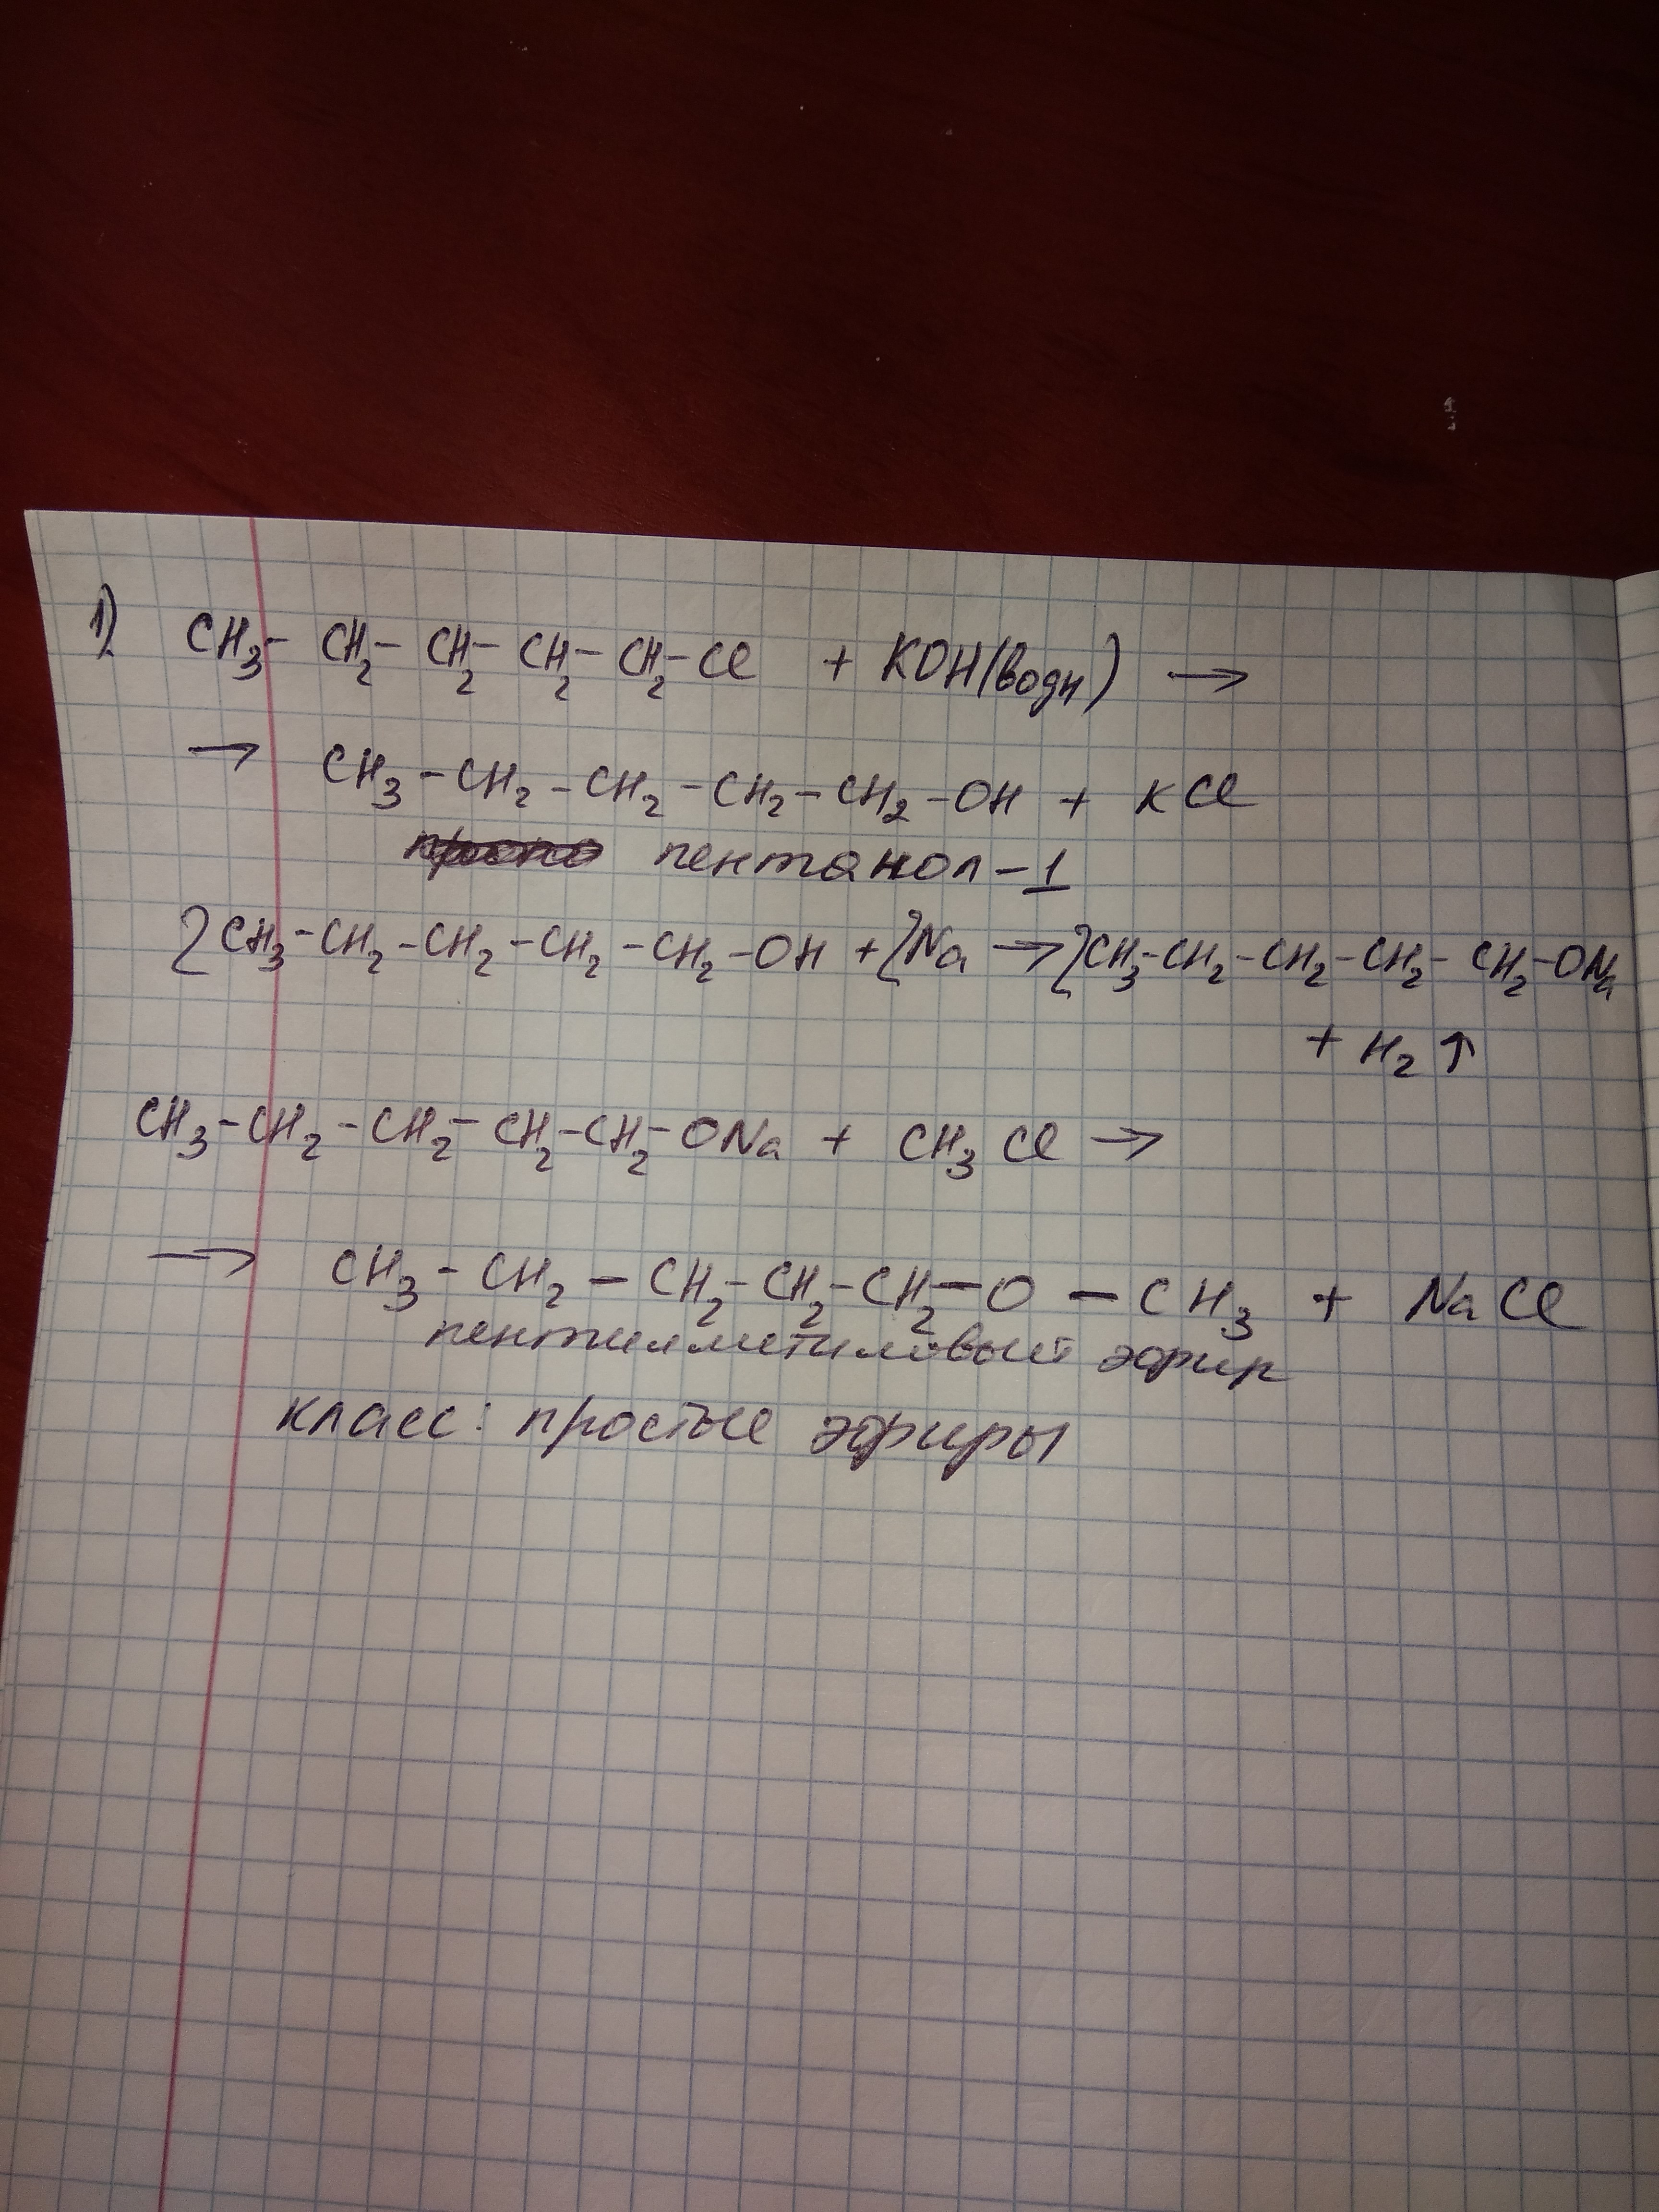 1) CH₃- CH₂- CH₂- CH₂- CH₂-Cl + KOH(водн) →
→ CH₃-CH₂-CH₂-CH₂-CH₂-OH + KCl
пентанол-1
2CH₃-CH₂-CH₂-CH₂-CH₂-OH + 2Na → 2CH₃-CH₂-CH₂-CH₂-CH₂-ONa
+ H₂↑
CH₃-CH₂-CH₂-CH₂-CH₂-ONa + CH₃Cl →
→ CH₃-CH₂-CH₂-CH₂-CH₂-O-CH₃ + NaCl
пентилметиловый эфир
класс: простые эфиры